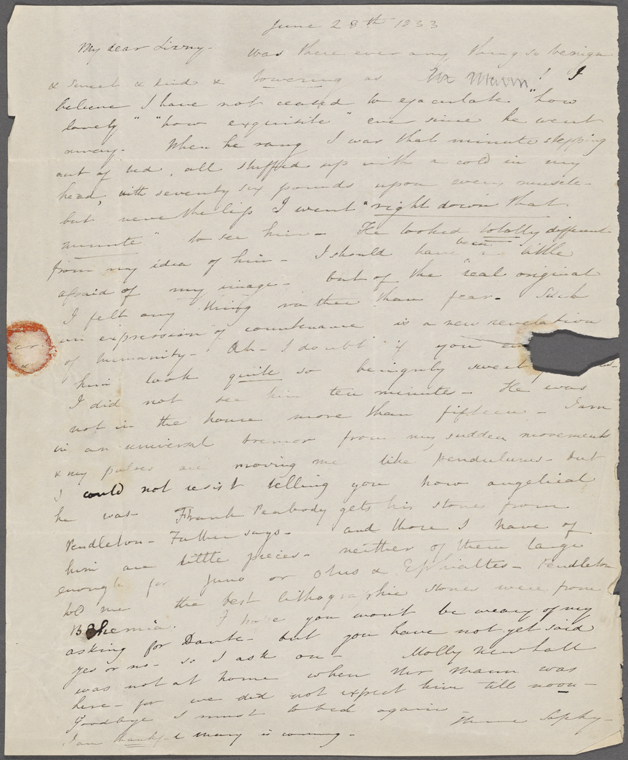 June 28th 1833
My dear Lizzy. Was there ever any thing so benign
& sweet & kind & towering as Mr Mann! I
believe I have not ceased to ejaculate "how
lovely" "how exquisite" ever since he went
away. When he rang I was that minute stepping
out of bed, all stuffed up with a cold in my
head, with seventy six pounds upon every muscle.
but never the less I went "right down that
minute" to see him — He looked totally different
from my idea of him — I should have been a little
afraid of my image — but of the real original
I felt any thing rather than fear. Such
an expression of countenance is a new revelation
of humanity. Oh — I doubt if you
him look quite so benignly sweet
I did not see him ten minutes — He was
not in the house more than fifteen — I am
in an universal tremor from my sudden movements
& my pulses are moving me like pendulums. but
I could not resist telling you how angelical
he was. Frank Peabody gets his stone from
Pendleton — Father says — and those I have of
him are little pieces — neither of them large
enough for Juno or Otus & Ephialtes — Pendleton
told me the best lithographic stones were from
Bohemia. I hope you wont be weary of my
asking for Dante — but you have not yet said
yes or no — so I ask on — Molly Newhall
was not at home when Mr Mann was
here — for we did not expect him till noon —
Goodbye I must to bed again —
Thine Sophy —
I am thankful Mary is coming —